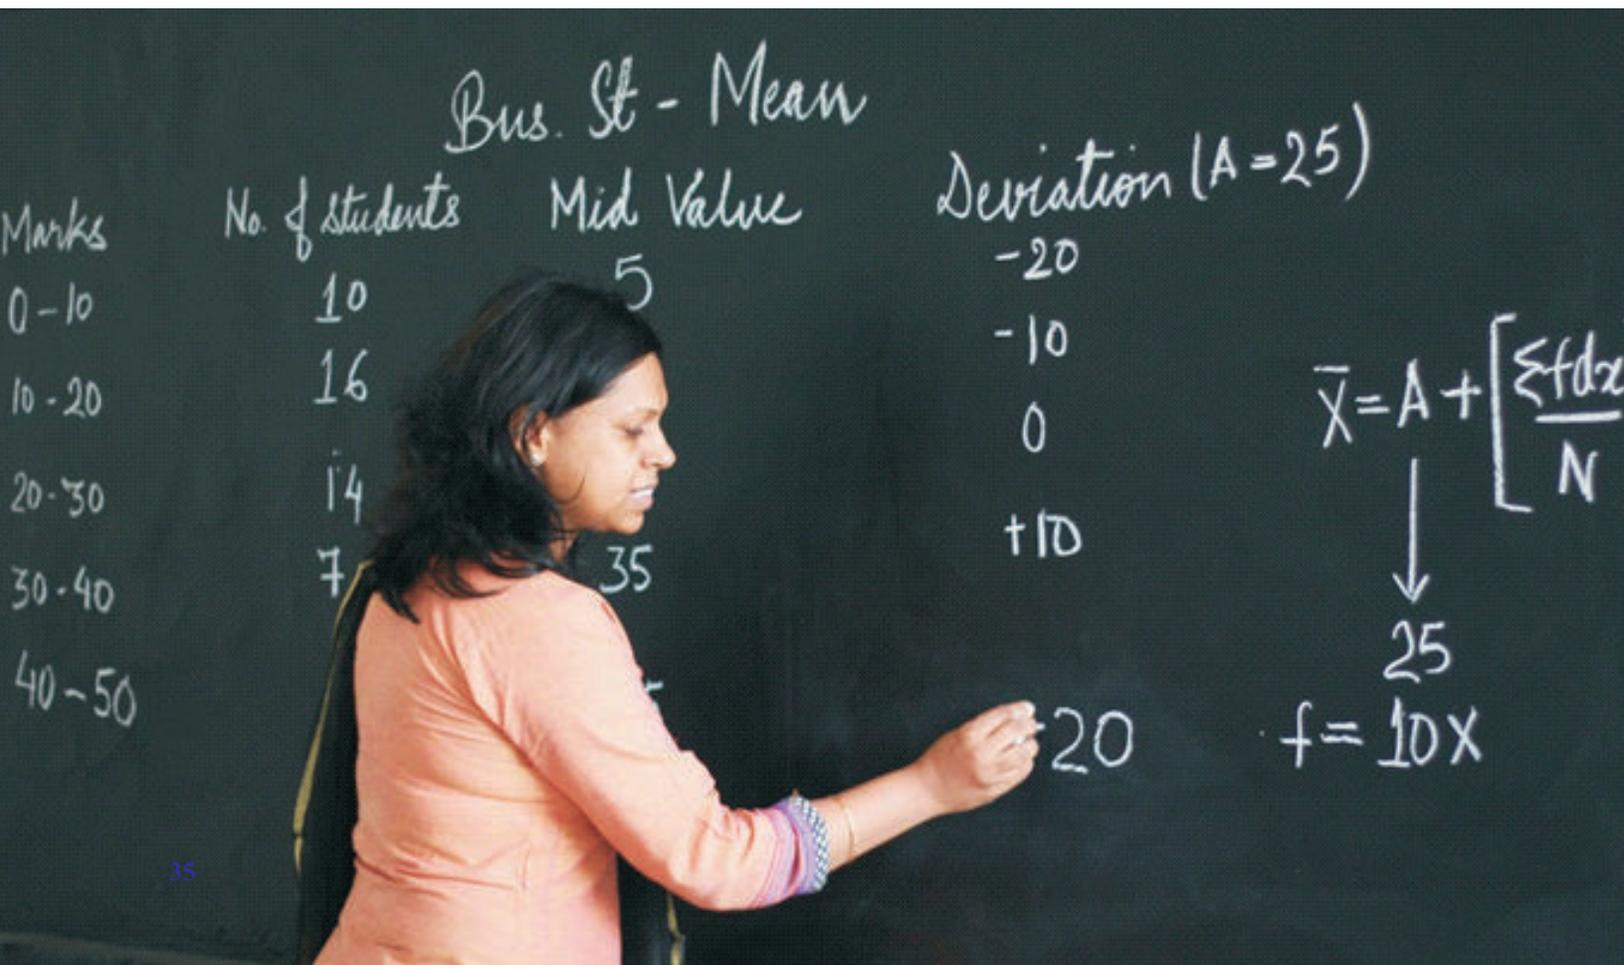 Bus. St - Mean
Marks No. of students Mid Value Deviation (A=25)
0-10 10 5 -20
10-20 16 -10
20-30 14 0
30-40 7 35 +10
40-50 20
X̄ = A + [Σfdx
N
25
f = 10X
35